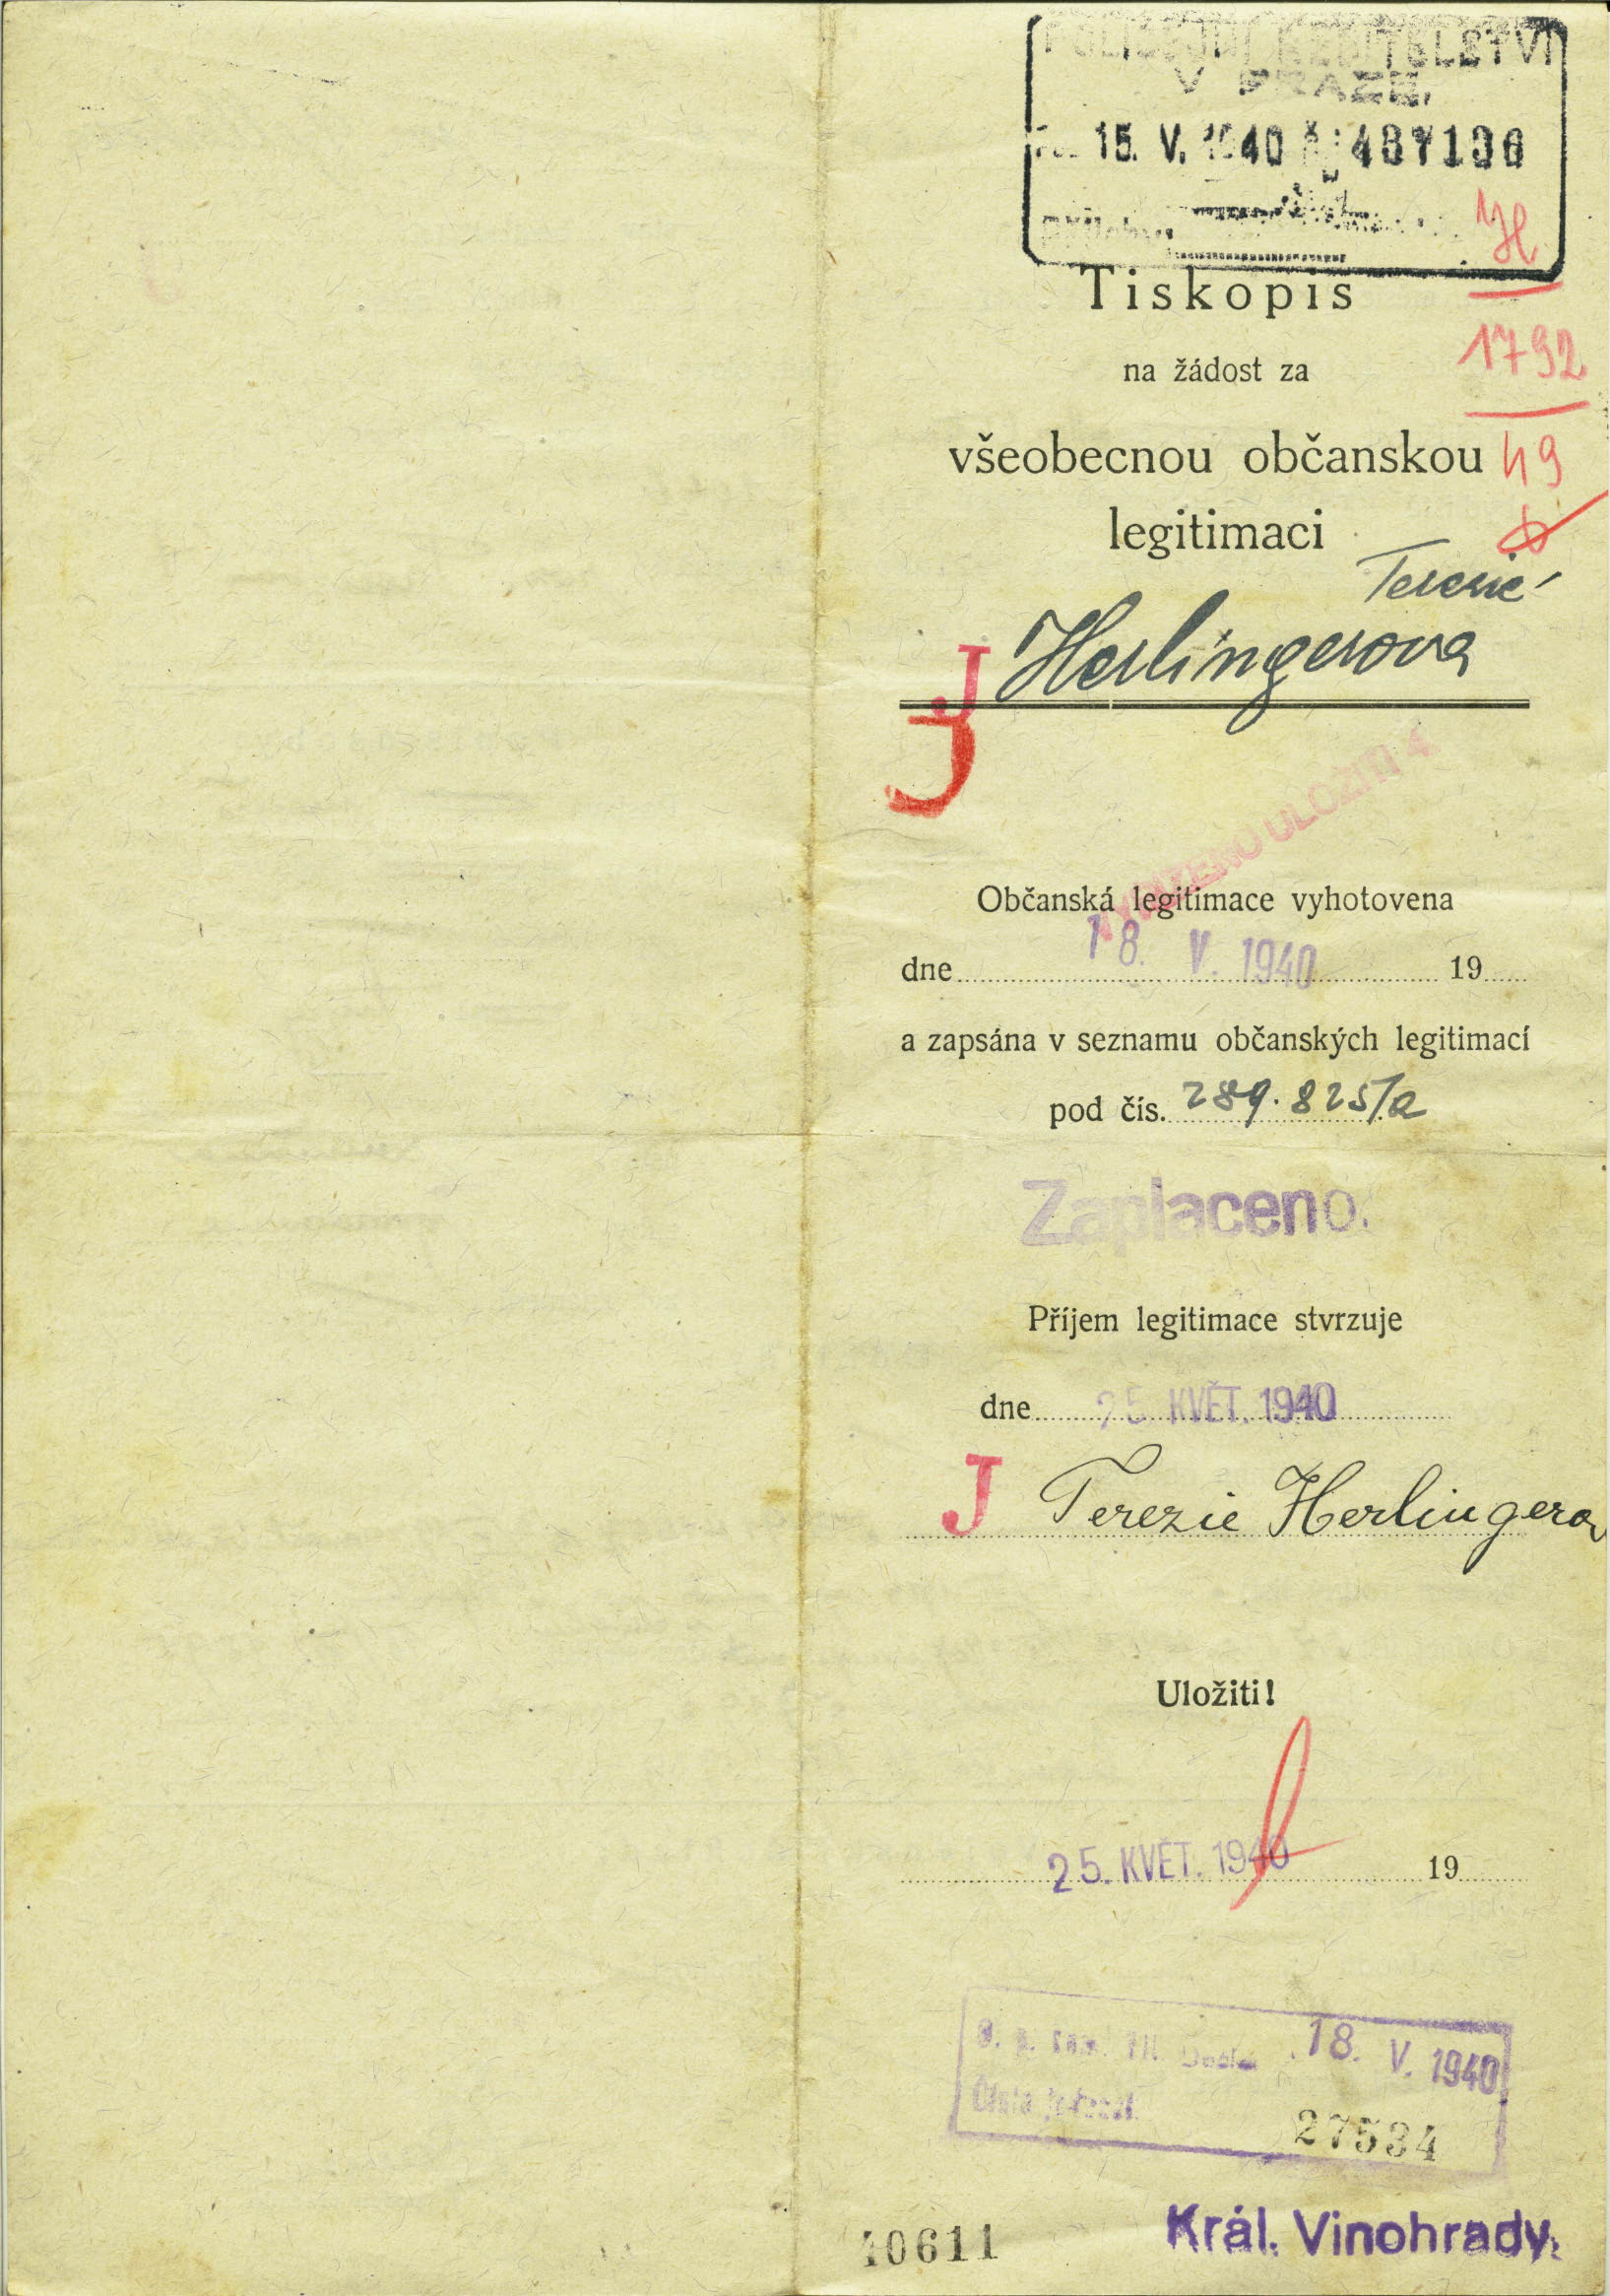 POLICEJNÍ ŘEDITELSTVÍ
V PRAZE,
15. V. 1940 487136
H
Tiskopis
1792
na žádost za
všeobecnou občanskou
49
legitimaci
Terezie
J Herlingerova
J
VYŘÍZENO ULOŽITI 4
Občanská legitimace vyhotovena
dne 18. V. 1940 19
a zapsána v seznamu občanských legitimací
pod čís. 289.825/a
Zaplaceno.
Příjem legitimace stvrzuje
dne 25 KVĚT. 1940
J Terezie Herlingerov
Uložiti!
25. KVĚT. 1940 19
18. V. 1940
27534
10611
Král. Vinohrady.